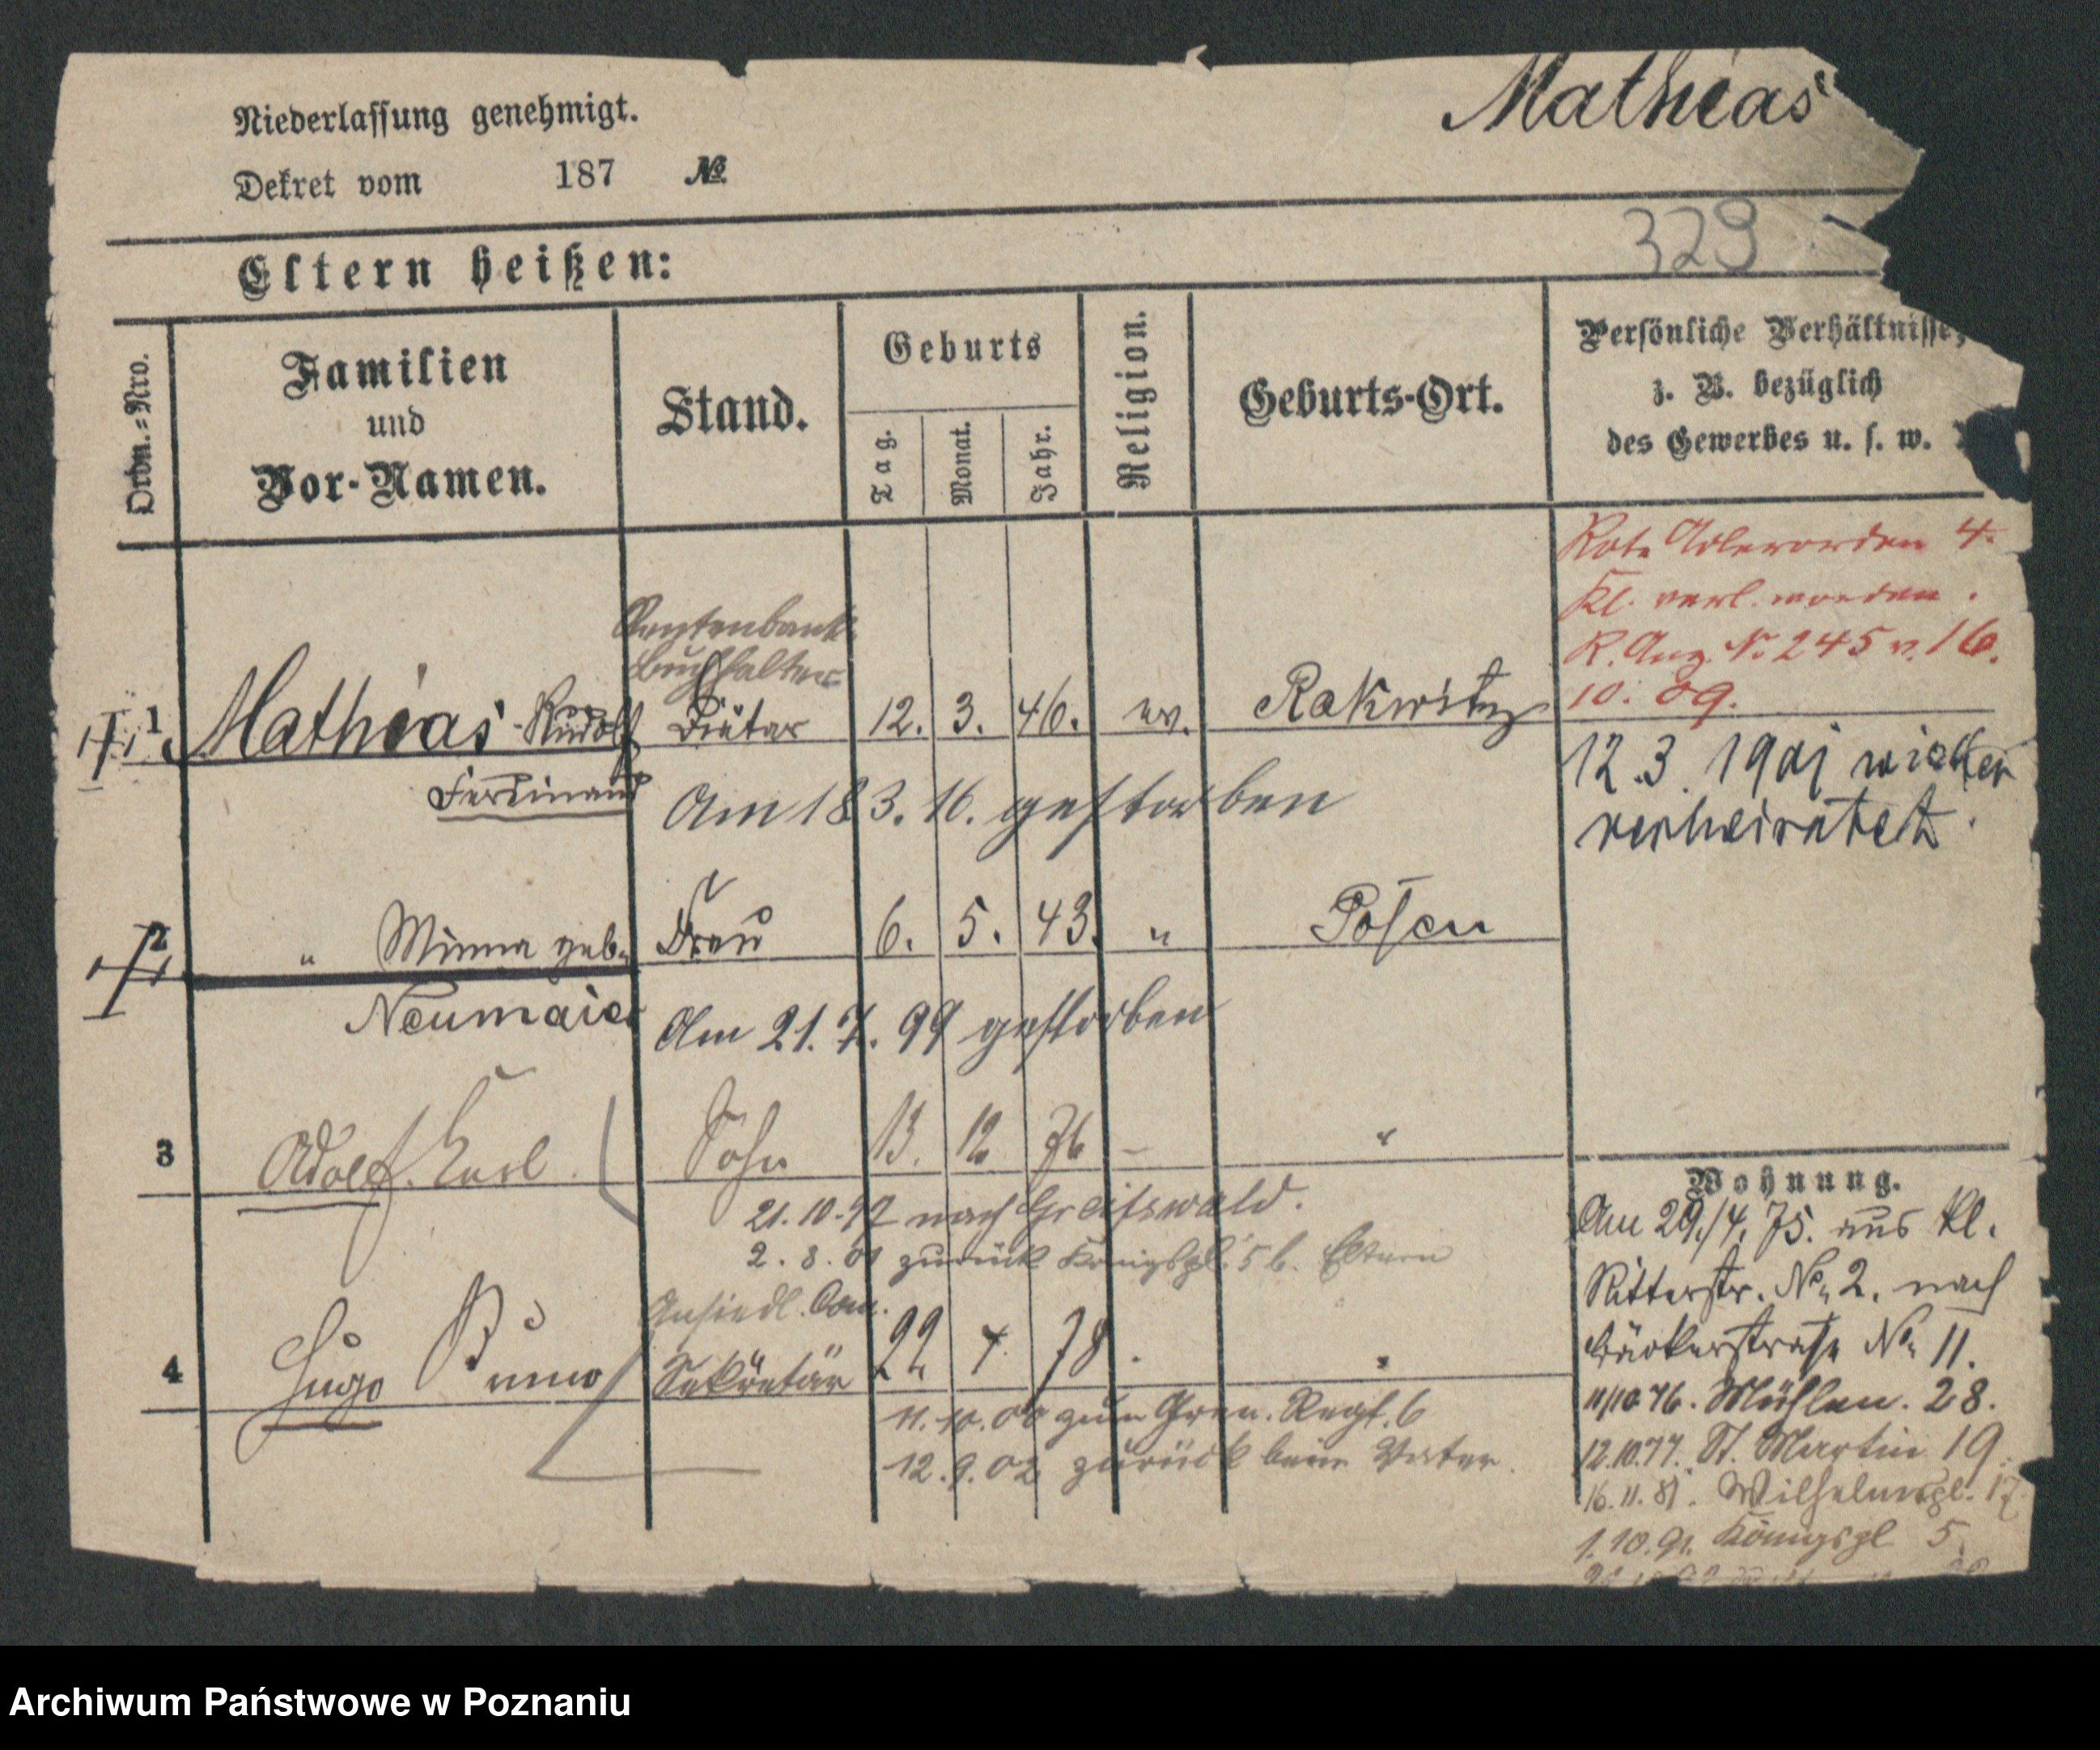 Mathias
Niederlassung genehmigt.
Dekret vom 187 №
329
Eltern heißen:
Ordn.=Nro.
Familien
und
Vor-Namen.
Stand.
Geburts
Tag.
Monat.
Jahr.
Religion.
Geburts-Ort.
Persönliche Verhältnisse,
z. B. bezüglich
des Gewerbes u. s. w.
Rote Adlerorden 4.
Kl. verl. worden.
R. Anz. № 245 v. 16.
10. 09.
Rentenbank
Buchhalter
1 Mathias Rudolf Diätar 12. 3. 46. ev. Rakwitz
Ferdinand
Am 18 3. 16. gestorben
12.3. 1901 wieder
verheiratet.
2 " Minna geb. Frau 6. 5. 43. " Posen
Neumaier
Am 21. 7. 99 gestorben
3 Adolf Karl Sohn 13. 12 76 - "
21.10.97 nach Greifswald.
2. 8. 01 zurück Königspl. 5 b. Eltern
Ansiedl. Com.
4 Hugo Bruno Sekretär 22 4. 78 "
11.10.00 zum Gren. Regt. 6
12.9.02 zurück beim Vater
Wohnung.
Am 29./4. 75. aus kl.
Ritterstr. No 2. nach
Bäckerstraße No 11.
11/10 76. Mühlen. 28.
12.10.77. St. Martin 19
16.11.81. Wilhelmspl. 17
1.10.91. Königspl 5
Archiwum Państwowe w Poznaniu